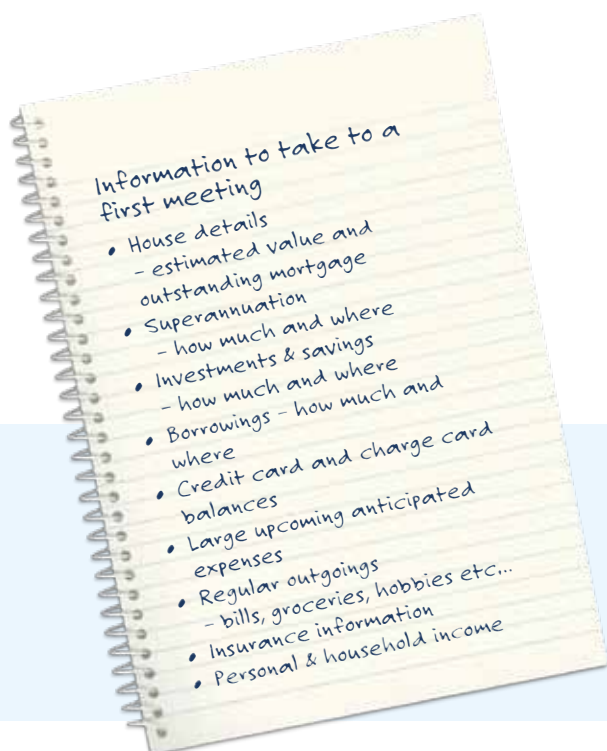 Information to take to a
first meeting
• House details
– estimated value and
outstanding mortgage
• Superannuation
– how much and where
• Investments & savings
– how much and where
• Borrowings – how much and
where
• Credit card and charge card
balances
• Large upcoming anticipated
expenses
• Regular outgoings
– bills, groceries, hobbies etc...
• Insurance information
• Personal & household income